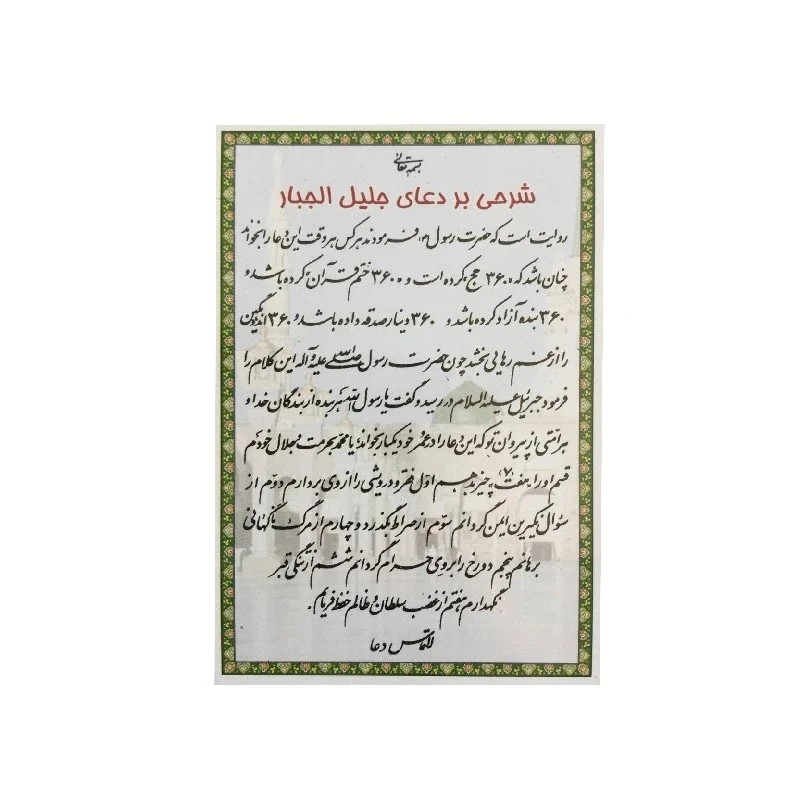 بسمه تعالی
شرحی بر دعای جلیل الجبار
روایت است که حضرت رسول (ص) فرمودند هر کس هر وقت این دعا را بخواند
چنان باشد که ۳۶۰ حج کرده است و ۳۶۰ ختم قرآن کرده باشد و
۳۶۰ بنده آزاد کرده باشد و ۳۶۰ دینار صدقه داده باشد و ۳۶۰ اندوهگین
را از غم رهایی بخشد چون حضرت رسول صلی الله علیه و آله این کلام را
فرمود جبرئیل علیه السلام در رسید و گفت یا رسول الله هر بنده از بندگان خدا و
هر امتی از پیروان تو که این دعا را در عمر خود یکبار بخواند یا محمد بحرمت و جلال خودم
قسم او را هفت (۷) چیز بدهم اول فقر و درویشی را از وی بردارم دوم از
سؤال نکیرین ایمن گردانم سوم از صراط بگذرد و چهارم از مرگ ناگهانی
برهانم پنجم دوزخ را بروی حرام گردانم ششم از تنگی قبر
نگهدارم هفتم از غضب سلطان و ظالم حفظ فرمایم.
التماس دعا